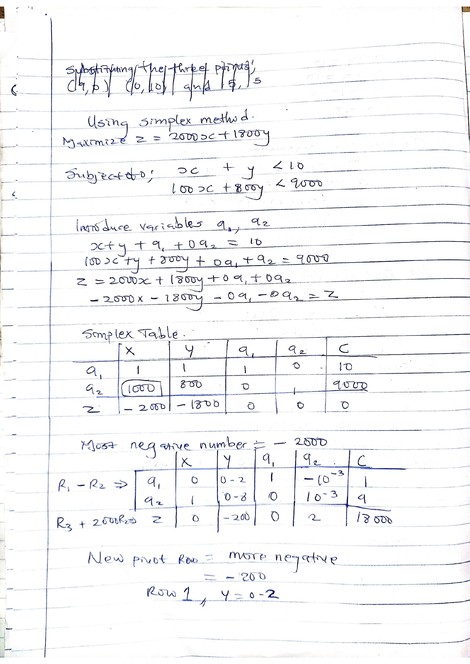 Substituting the three points,
(9,0) (0,10) and 5, 5
Using simplex method.
Maximize Z = 2000x + 1800y
Subject to; x + y < 10
100x + 800y < 9000
Introduce variables q1, q2
x + y + q1 + 0q2 = 10
100x + y + 800y + 0q1 + q2 = 9000
Z = 2000x + 1800y + 0q1 + 0q2
- 2000x - 1800y - 0q1 - 0q2 = Z
Simplex Table.
X Y q1 q2 C
q1 1 1 1 0 10
q2 1000 800 0 1 9000
Z -2000 -1800 0 0 0
Most negative number = - 2000
X Y q1 q2 C
R1 - R2 ⇒ q1 0 0.2 1 -10^-3 1
q2 1 0.8 0 10^-3 9
R3 + 2000R2 Z 0 -200 0 2 18000
New pivot Row = more negative
= -200
Row 1, y = 0.2